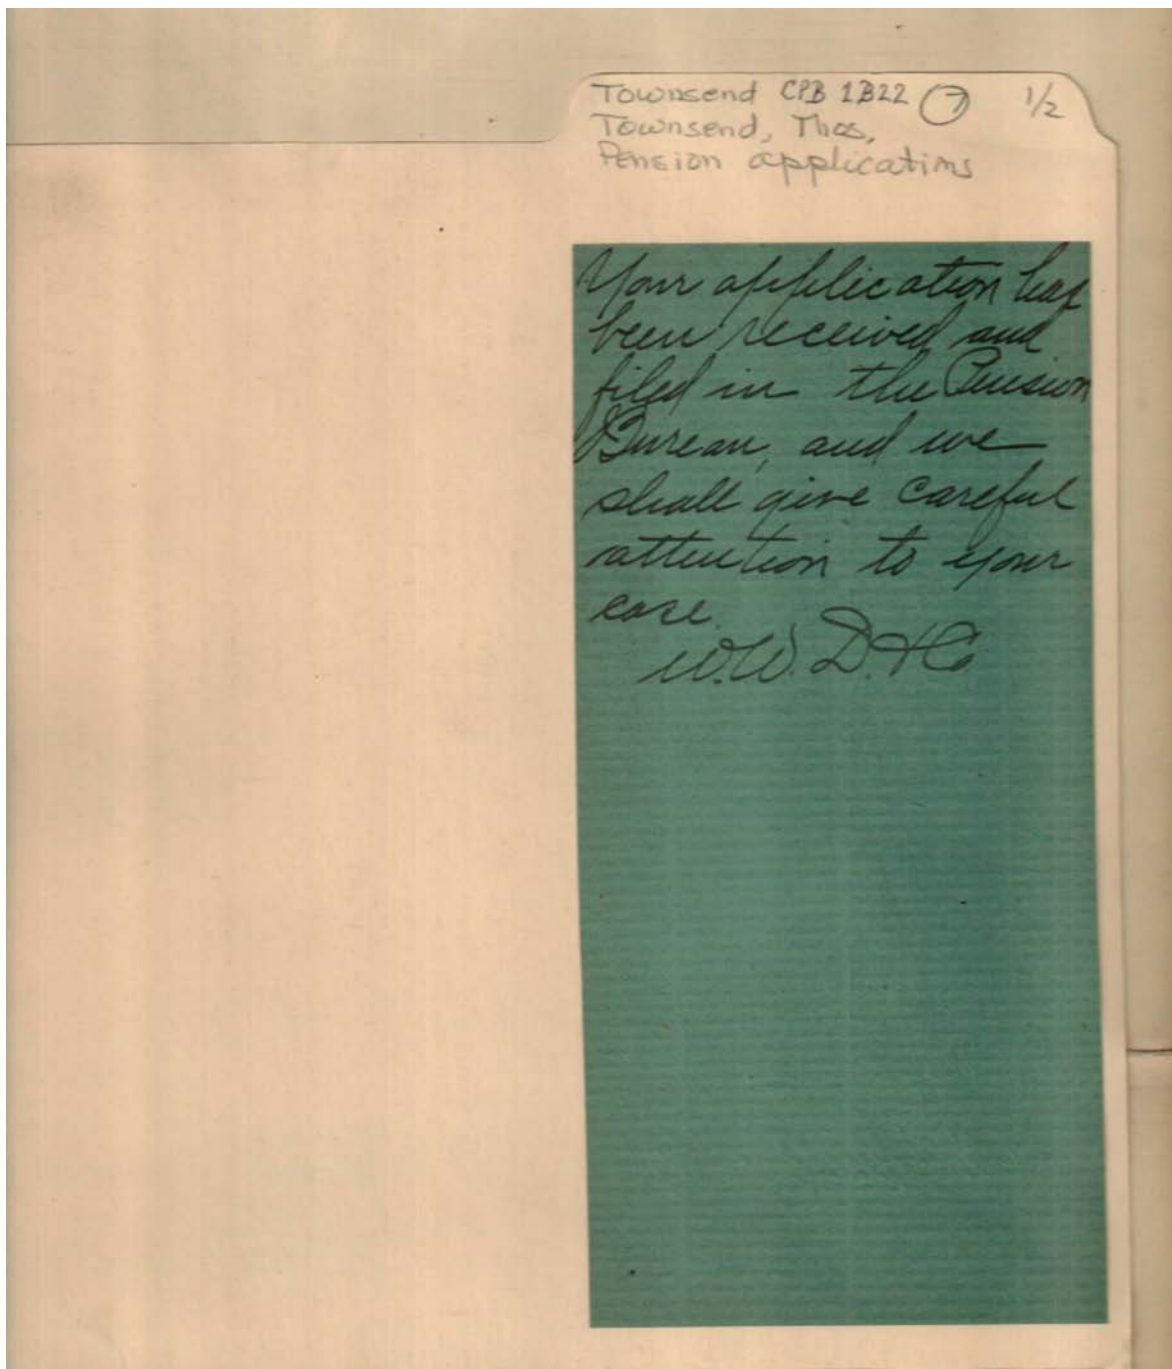 Townsend CPB 1B22 7 1/2
Townsend, Thos,
Pension applications
Your application has
been received and
filed in the Pension
Bureau, and we
shall give careful
attention to your
case.
W.W. D. & Co